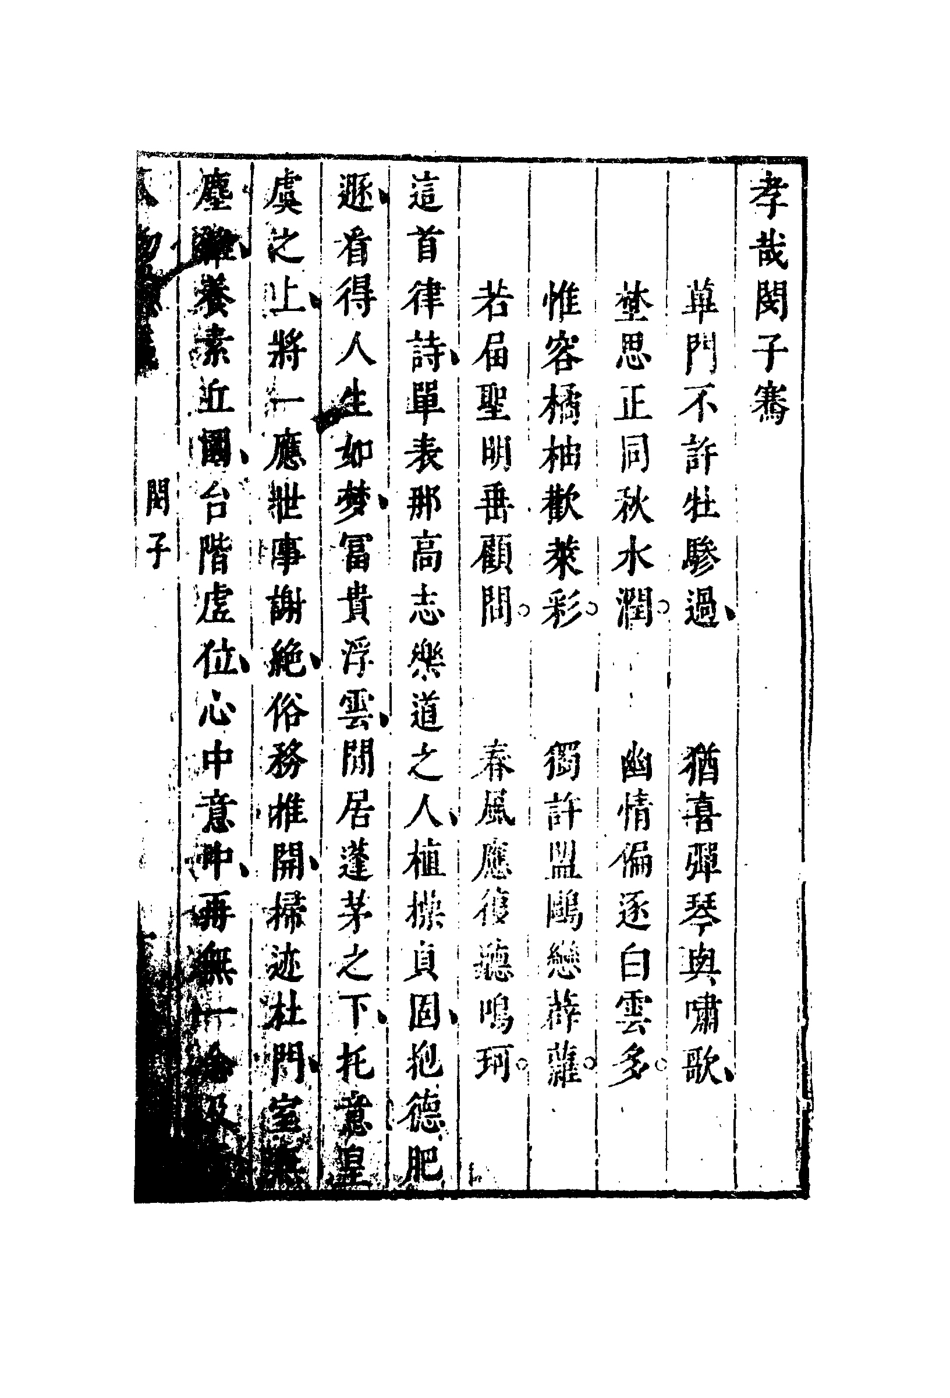 孝哉閔子騫
蓽門不許牡驂過、猶喜彈琴與嘯歌、
塋思正同秋水潤。幽情偏逐白雲多。
惟容橘柚歡萊彩。獨許盟鷗戀薜蘿。
若届聖明垂顧問。春風應復聽鳴珂。
這首律詩、單表那高志樂道之人、植操貞固、抱德肥
遯、看得人生如梦、冨貴浮雲、閒居蓬茅之下、托意皇
虞之上、將一應世事謝絶、俗務推開、掃迹杜門、室無
塵雜、養素近圃、台階虚位、心中意中、再無一念及
閔子